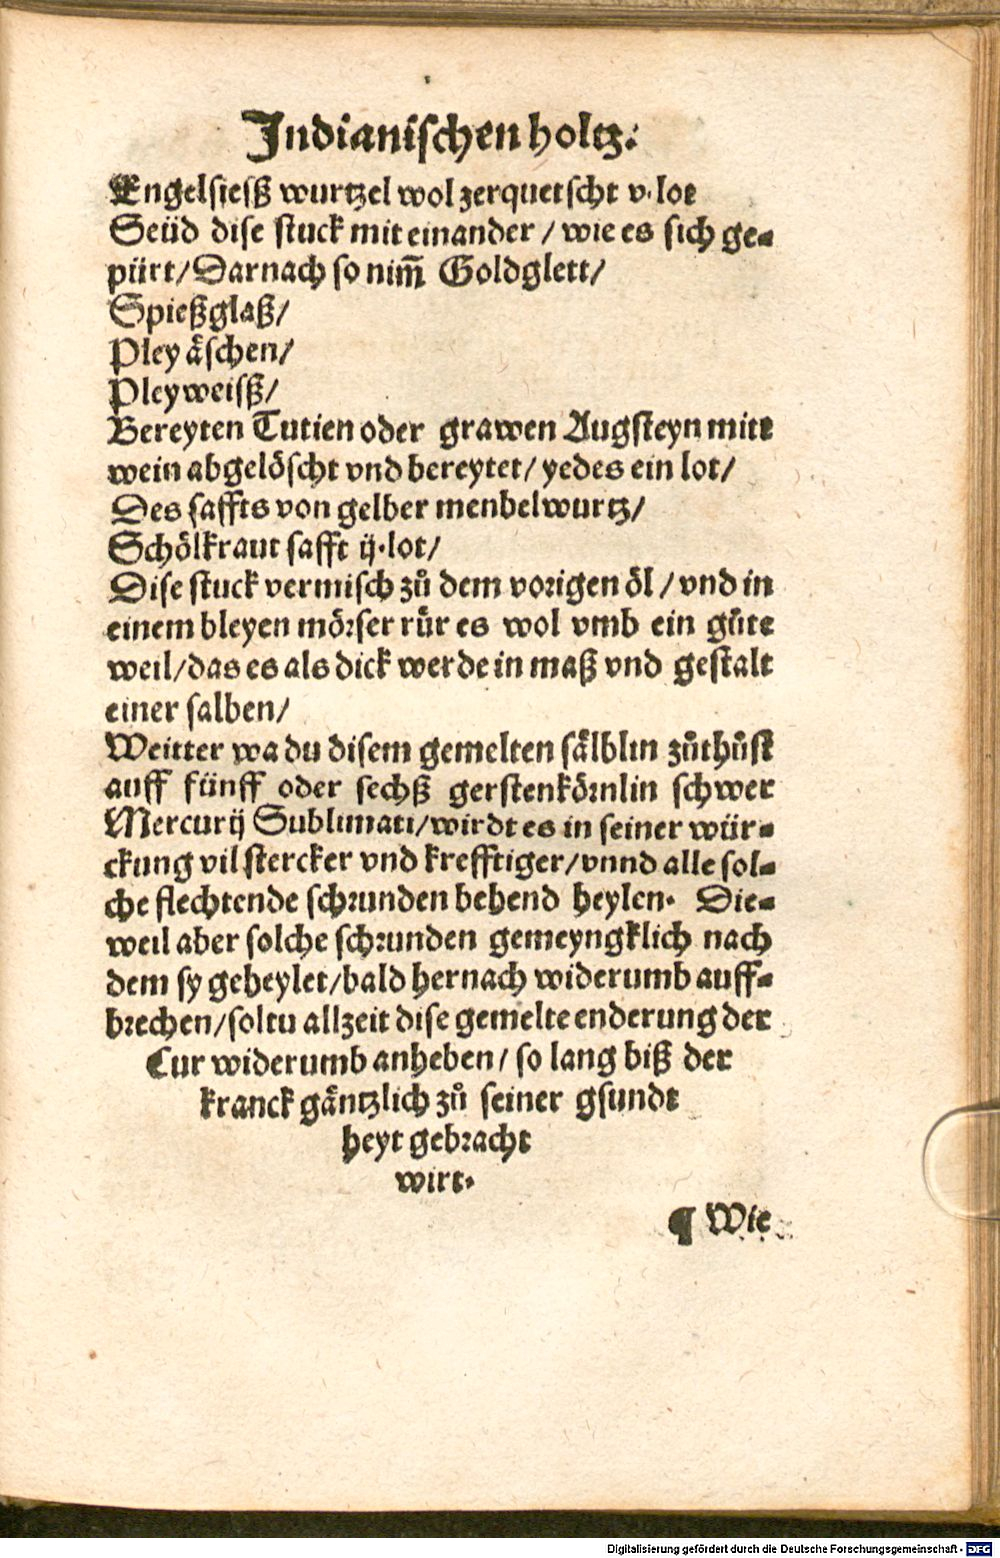 Indianischen holtz.
Engelsiesß wurtzel wol zerquetscht v. lot
Seüd dise stuck mit einander / wie es sich ge-
pürt / Darnach so nim̃ Goldglett /
Spießglaß /
Pley äschen /
Pleyweisß /
Bereyten Tutien oder grawen Augsteyn mitt
wein abgelöscht vnd bereytet / yedes ein lot /
Des saffts von gelber menbelwurtz /
Schölkraut safft ij. lot /
Dise stuck vermisch zů dem vorigen öl / vnd in
einem bleyen mörser rür es wol vmb ein gůte
weil / das es als dick werde in maß vnd gestalt
einer salben /
Weitter wa du disem gemelten sälblin zůthůst
auff fünff oder sechß gerstenkörnlin schwer
Mercurij Sublimati / wirdt es in seiner wür-
ckung vil stercker vnd krefftiger / vnnd alle sol-
che flechtende schrunden behend heylen. Die-
weil aber solche schrunden gemeyngklich nach
dem sy geheylet / bald hernach widerumb auff-
brechen / soltu allzeit dise gemelte enderung der
Cur widerumb anheben / so lang biß der
kranck gäntzlich zů seiner gsundt
heyt gebracht
wirt.
¶ Wie
Digitalisierung gefördert durch die Deutsche Forschungsgemeinschaft - DFG